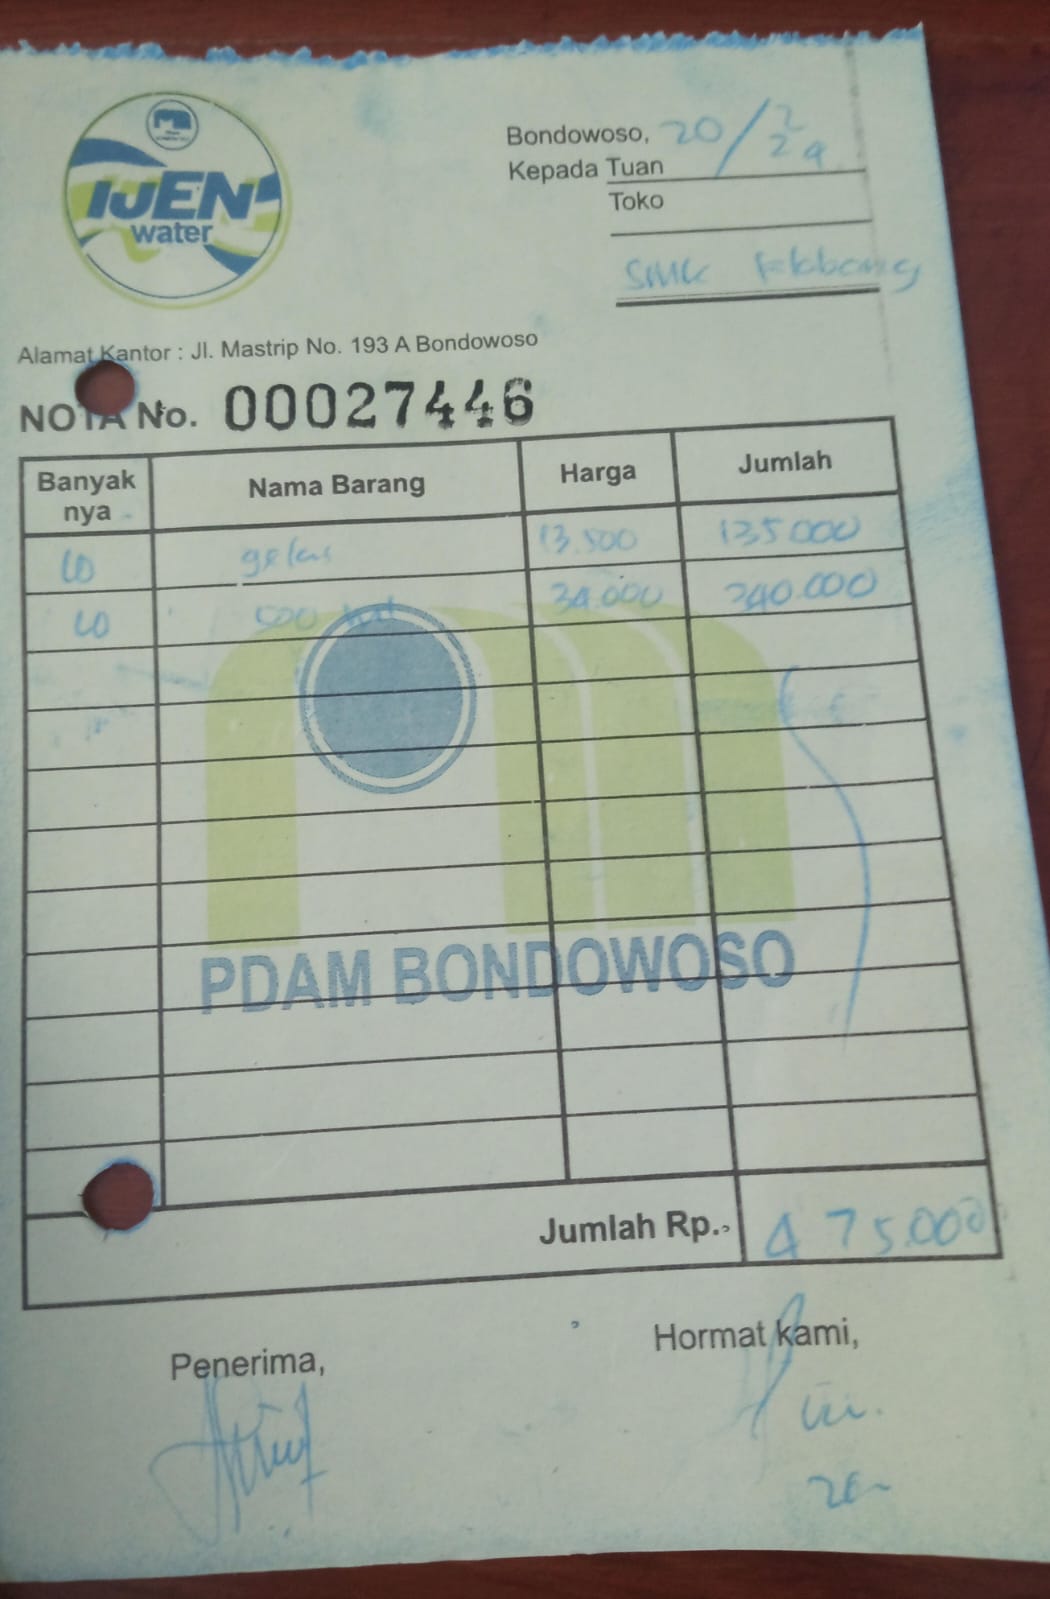 IJEN
water
Bondowoso, 20/2 24
Kepada Tuan
Toko
SMK
Alamat Kantor : Jl. Mastrip No. 193 A Bondowoso
NOTA No. 00027446
Banyak nya Nama Barang Harga Jumlah
10 gelas 13.500 135.000
10 500 34.000 340.000
PDAM BONDOWOSO
Jumlah Rp. 475.000
Penerima, Hormat kami,